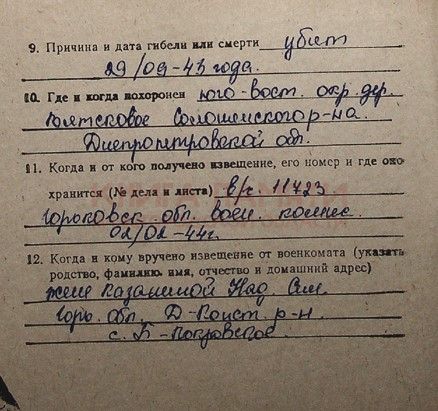 9. Причина и дата гибели или смерти убит
29/09-43 года.
10. Где и когда похоронен юго-вост. окр. дер.
Солошинского р-на.
Днепропетровской обл.
11. Когда и от кого получено извещение, его номер и где он
хранится (№ дела и листа) в/с. 11723
Горьковск. обл. воен.
02/02-44г.
12. Когда и кому вручено извещение от военкомата (указать
родство, фамилию, имя, отчество и домашний адрес)
жене Казаниной Над. Сем.
Горь. обл. Д-Конст. р-н.
с. Б-Покровское.